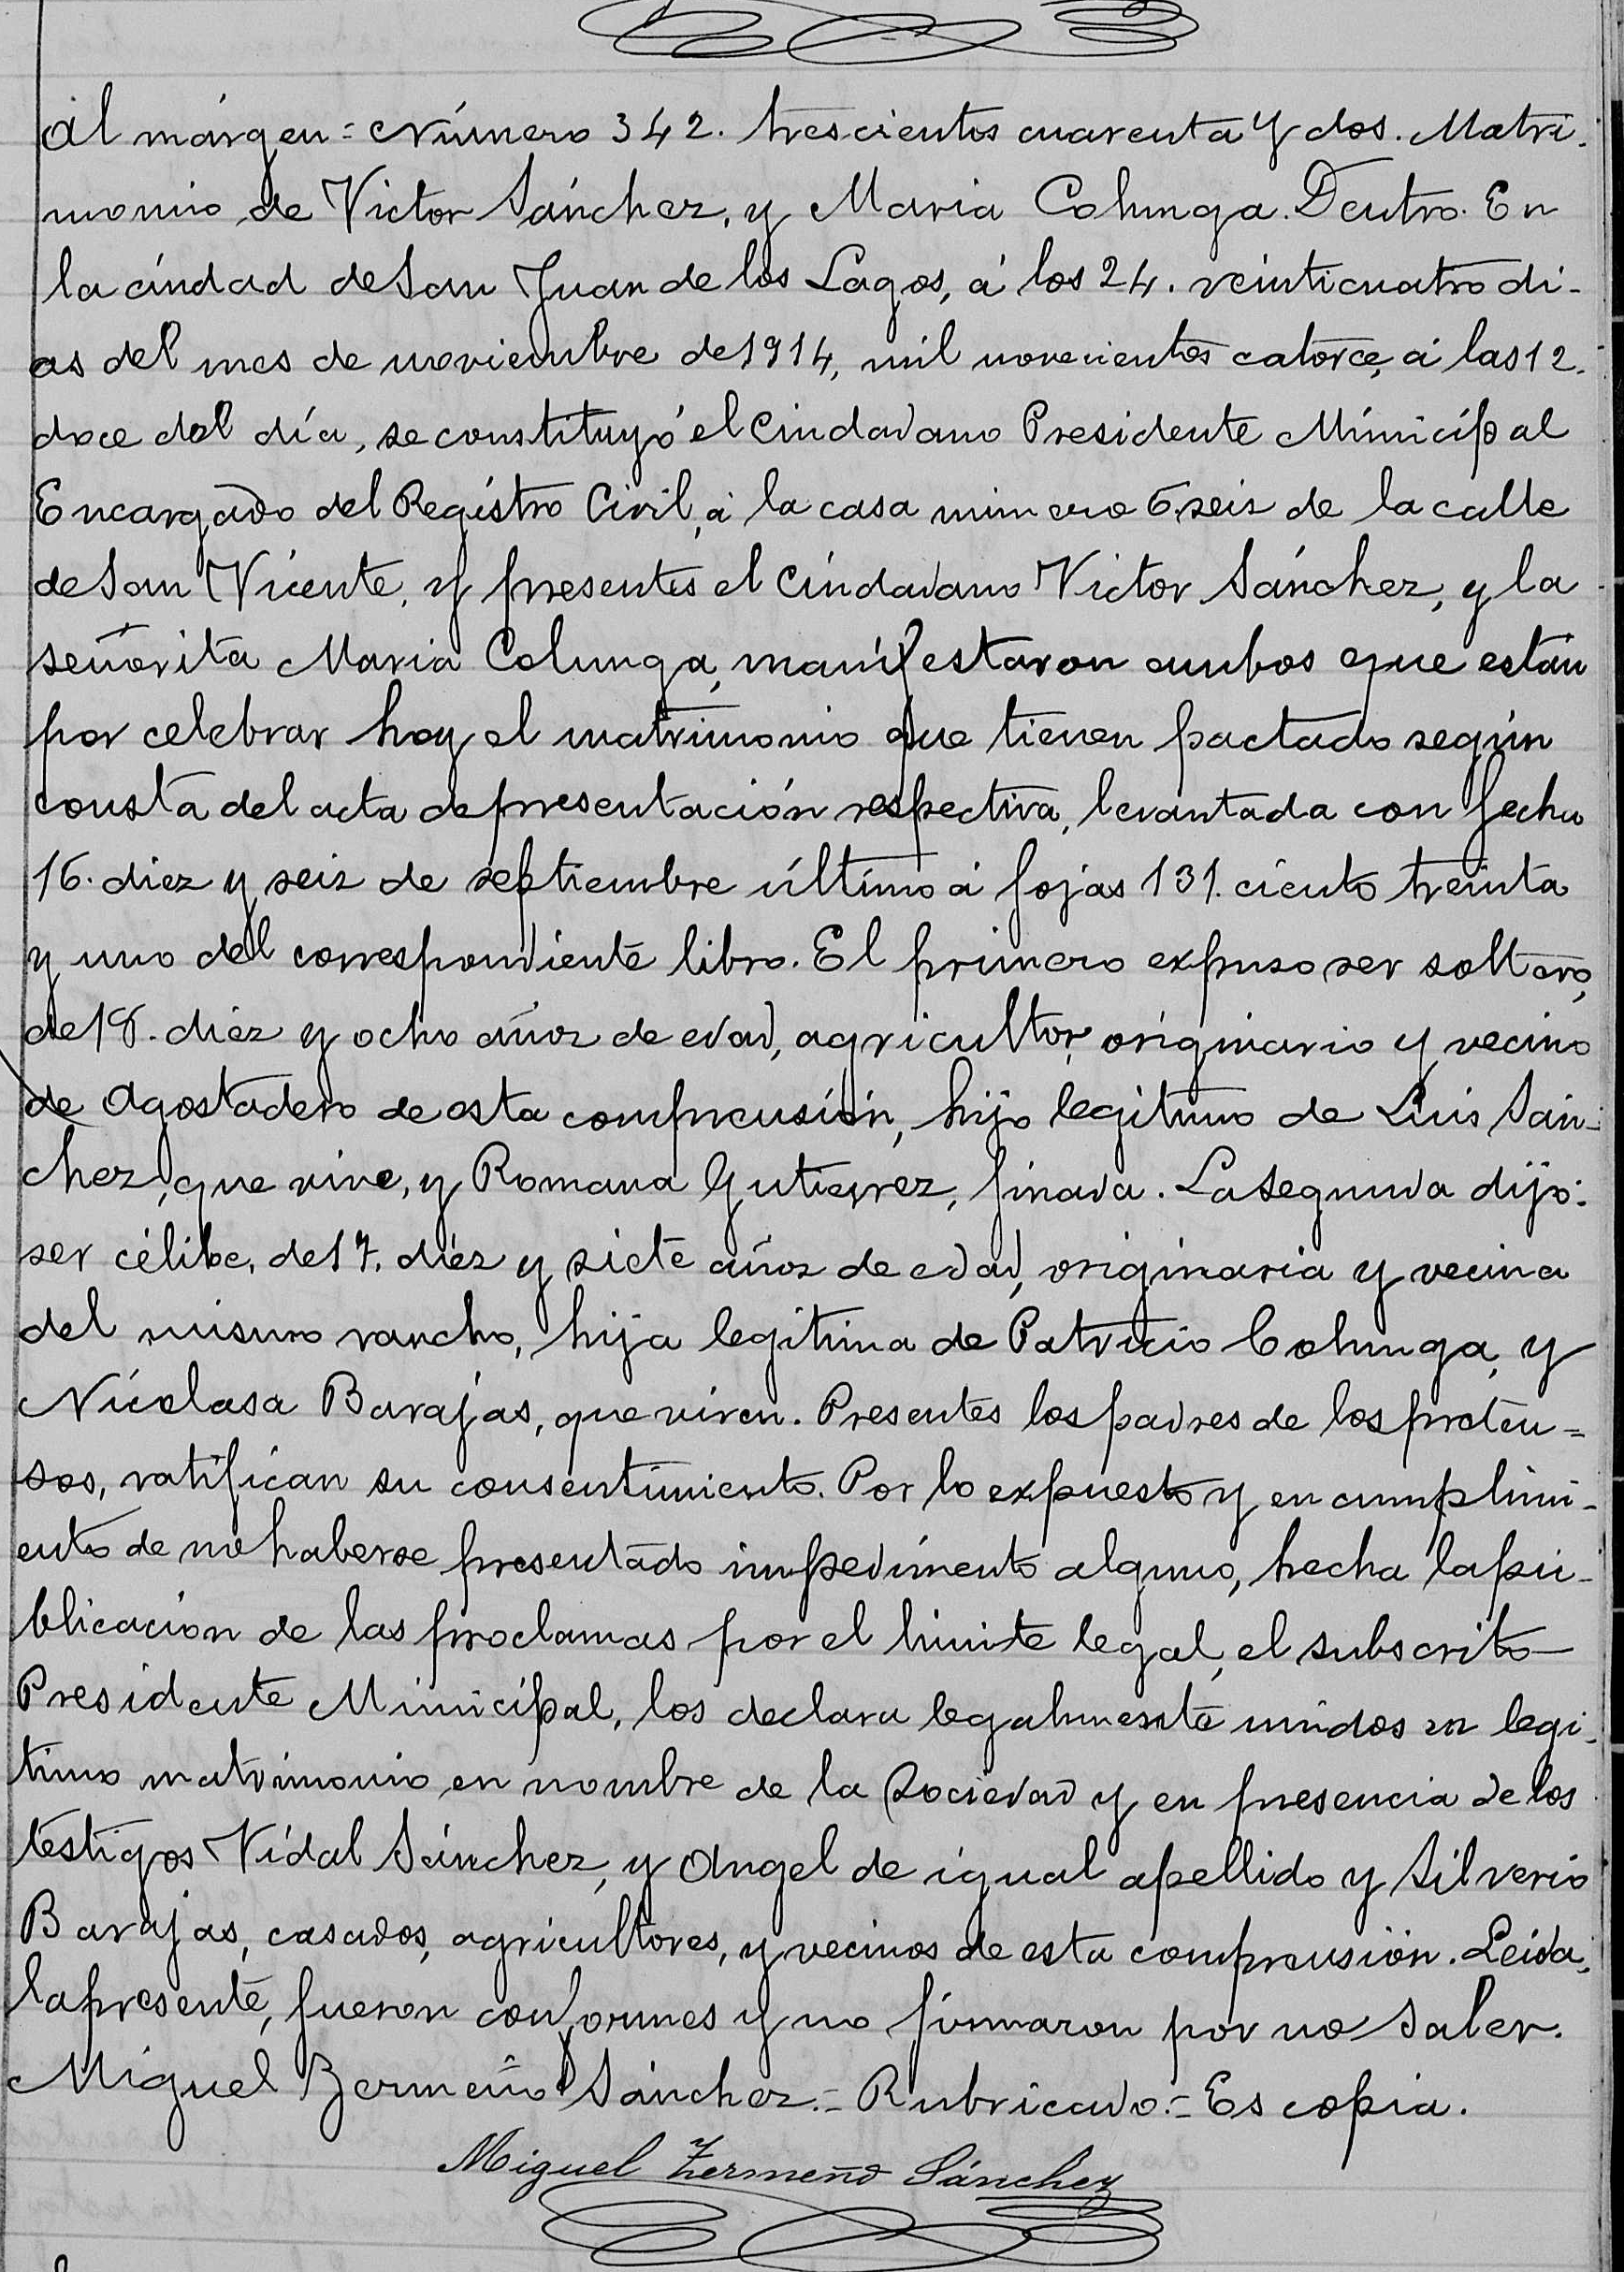 Al márgen = Número 342. trescientos cuarenta y dos. Matri-
monio de Victor Sánchez, y Maria Colunga. Dentro. En
la ciudad de San Juan de los Lagos, á los 24. veinticuatro di-
as del mes de noviembre de 1914, mil novecientos catorce, á las 12.
doce del día, se constituyó el Ciudadano Presidente Municipal
Encargado del Registro Civil, á la casa número 6, seis de la calle
de San Vicente, y presentes el Ciudadano Victor Sánchez, y la
señorita Maria Colunga, manifestaron ambos que están
por celebrar hoy el matrimonio que tienen pactado según
consta del acta de presentación respectiva, levantada con fecha
16. diez y seis de septiembre último á fojas 131. ciento treinta
y uno del correspondiente libro. El primero expuso ser soltero,
de 18. diez y ocho años de edad, agricultor, originario y vecino
de Agostadero de esta comprensión, hijo legitimo de Luis Sán-
chez, que vive, y Romana Gutierrez, finada. La segunda dijo:
ser célibe, de 17. diez y siete años de edad, originaria y vecina
del mismo rancho, hija legitima de Patricio Colunga, y
Nicolasa Barajas, que viven. Presentes los padres de los preten=
sos, ratifican su consentimiento. Por lo expuesto y en cumplimi-
ento de no haberse presentado impedimento alguno, hecha la pu-
blicación de las proclamas por el limite legal, el subscrito
Presidente Municipal, los declara legalmente unidos en legi-
timo matrimonio en nombre de la Sociedad y en presencia de los
testigos Vidal Sánchez, y Angel de igual apellido y Silverio
Barajas, casados, agricultores, y vecinos de esta comprensión. Leida,
la presente, fueron conformes y no firmaron por no saber.
Miguel Zermeño Sánchez.= Rubricado.= Es copia.
Miguel Zermeño Sánchez